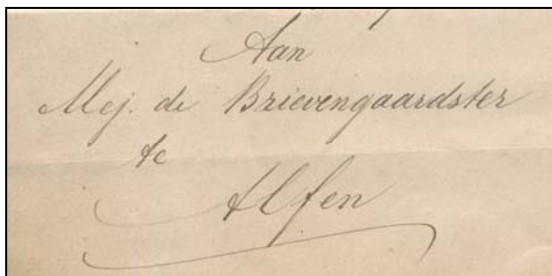 Aan
Mej. de Brievengaardster
te
Alfen